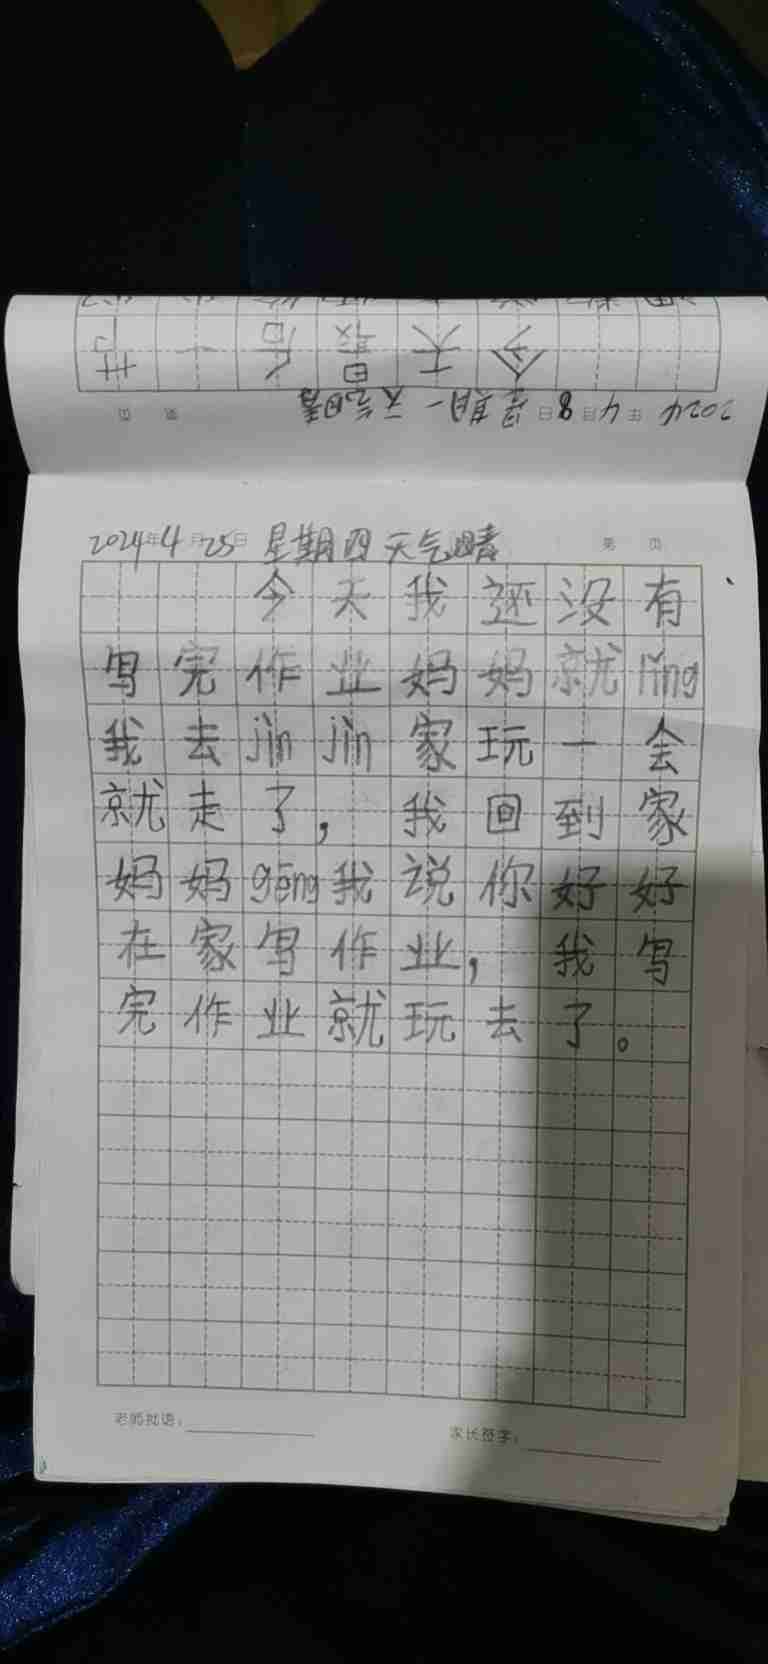 2024年4月25日 星期四 天气晴 第 页
今天我还没有
写完作业妈妈就lǐng
我去jìn jìn家玩一会
就走了，我回到家
妈妈gēng我说你好好
在家写作业，我写
完作业就玩去了。
老师批语：
家长签字：
2024年4月8日 星期一 天气晴 第 页
今天最后一节